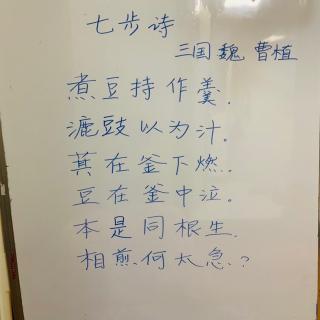 七步诗
三国 魏 曹植
煮豆持作羹.
漉豉以为汁。
萁在釜下燃.
豆在釜中泣。
本是同根生.
相煎何太急?